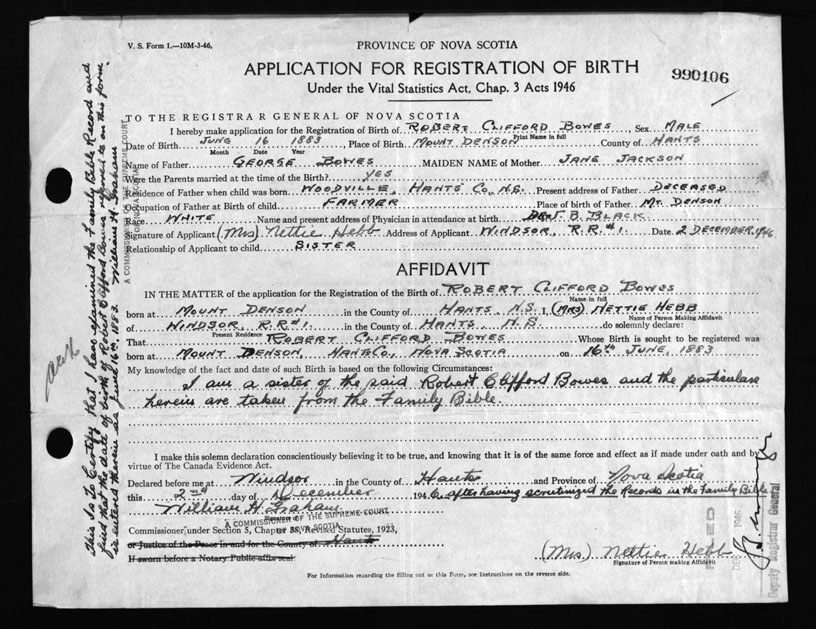 V. S. Form 1.—10M-3-46.
PROVINCE OF NOVA SCOTIA
APPLICATION FOR REGISTRATION OF BIRTH
990106
Under the Vital Statistics Act, Chap. 3 Acts 1946
TO THE REGISTRAR GENERAL OF NOVA SCOTIA
I hereby make application for the Registration of Birth of ROBERT CLIFFORD BOWES, Sex MALE
Print Name in full
Date of Birth JUNE 16 1883, Place of Birth MOUNT DENSON County of HANTS
Month Date Year
Name of Father GEORGE BOWES MAIDEN NAME of Mother JANE JACKSON
Were the Parents married at the time of the Birth? YES
Residence of Father when child was born WOODVILLE, HANTS CO., N.S. Present address of Father DECEASED
Occupation of Father at Birth of child FARMER Place of birth of Father MT. DENSON
Race WHITE Name and present address of Physician in attendance at birth J. B. BLACK
Signature of Applicant (Mrs) Nettie Hebb Address of Applicant WINDSOR, R.R.#1. Date 2 DECEMBER, 1946
Relationship of Applicant to child SISTER
AFFIDAVIT
IN THE MATTER of the application for the Registration of the Birth of ROBERT CLIFFORD BOWES
Name in full
born at MOUNT DENSON in the County of HANTS, N.S. I, (MRS) NETTIE HEBB
Name of Person Making Affidavit
of WINDSOR, R.R.#1. in the County of HANTS, N.S. do solemnly declare:
Present Residence
That ROBERT CLIFFORD BOWES Whose Birth is sought to be registered was
born at MOUNT DENSON, HANTS CO., NOVA SCOTIA on 16TH JUNE, 1883
My knowledge of the fact and date of such Birth is based on the following Circumstances:
I am a sister of the said Robert Clifford Bowes and the particulars
herein are taken from the Family Bible.
I make this solemn declaration conscientiously believing it to be true, and knowing that it is of the same force and effect as if made under oath and by
virtue of The Canada Evidence Act.
Declared before me at Windsor in the County of Hants and Province of Nova Scotia
this 2nd day of December 1946, after having scrutinized the Records in the Family Bible
William H. Graham
A COMMISSIONER OF THE SUPREME COURT
OF NOVA SCOTIA
Commissioner under Section 5, Chapter 38, Revised Statutes, 1923,
or Justice of the Peace in and for the County of Hants
If sworn before a Notary Public affix seal
(Mrs.) Nettie Hebb
Signature of Person making Affidavit
For Information regarding the filling out of this Form, see Instructions on the reverse side.
This is to Certify that I have examined the Family Bible Record and
find that the date of birth of Robert Clifford Bowes referred to on this form
is entered therein as June 16th, 1883. William H. Graham
A COMMISSIONER OF THE SUPREME COURT
OF NOVA SCOTIA
Deputy Registrar General